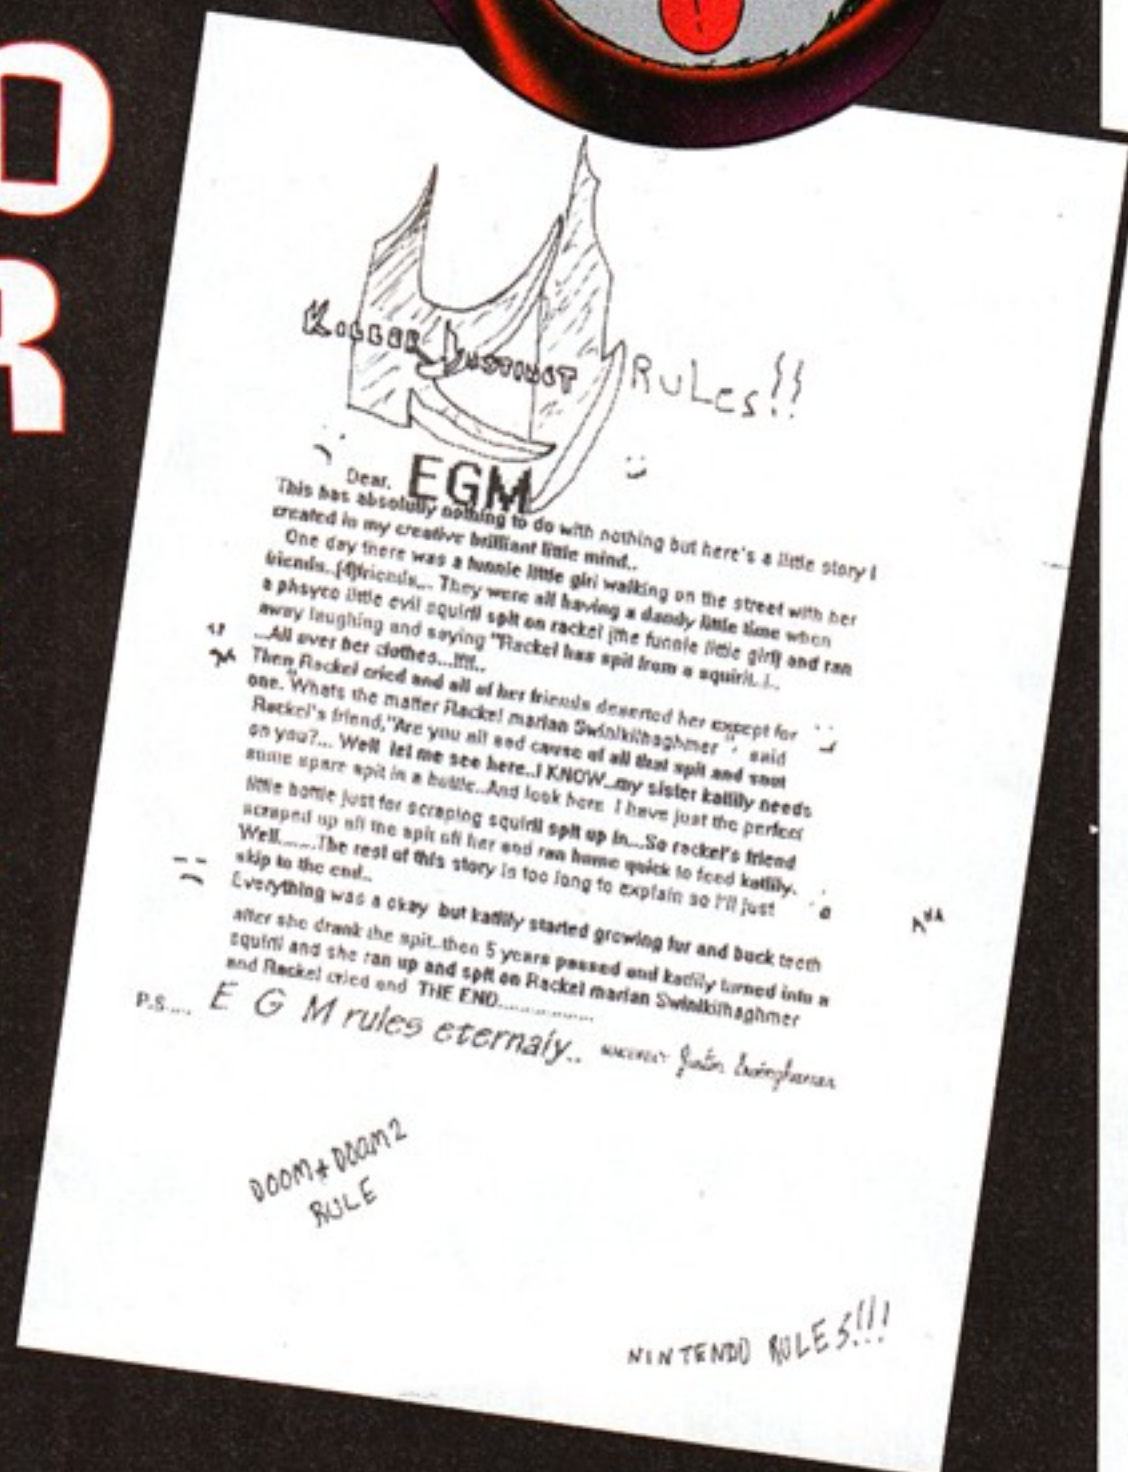 O
R
KILLER INSTINCT RULES!!
Dear, EGM
This has absolully nothing to do with nothing but here's a little story I
created in my creative brilliant little mind..
One day there was a funnie little girl walking on the street with her
friends..(4)friends.... They were all having a dandy little time when
a phsyco little evil squiril spit on rackel (the funnie little girl) and ran
away laughing and saying "Rackel has spit from a squiril..!..
...All over her clothes...!!!!..
Then Rackel cried and all of her friends deserted her except for
one. "Whats the matter Rackel marian Swinikilhaghmer", said
Rackel's friend,"Are you all sad cause of all that spit and snot
on you?... Well let me see here..I KNOW...my sister katlily needs
some spare spit in a bottle..And look here I have just the perfect
little bottle just for scraping squiril spit up in....So rackel's friend
scraped up all the spit off her and ran home quick to feed katlily.
Well........The rest of this story is too long to explain so I'll just
skip to the end..
Everything was a okay but katlily started growing fur and buck teeth
after she drank the spit..then 5 years passed and katlily turned into a
squiril and she ran up and spit on Rackel marian Swinikilhaghmer
and Rackel cried and THE END..................
P.S..... E G M rules eternaly.. Justin
DOOM + DOOM 2
RULE
NINTENDO RULES!!!